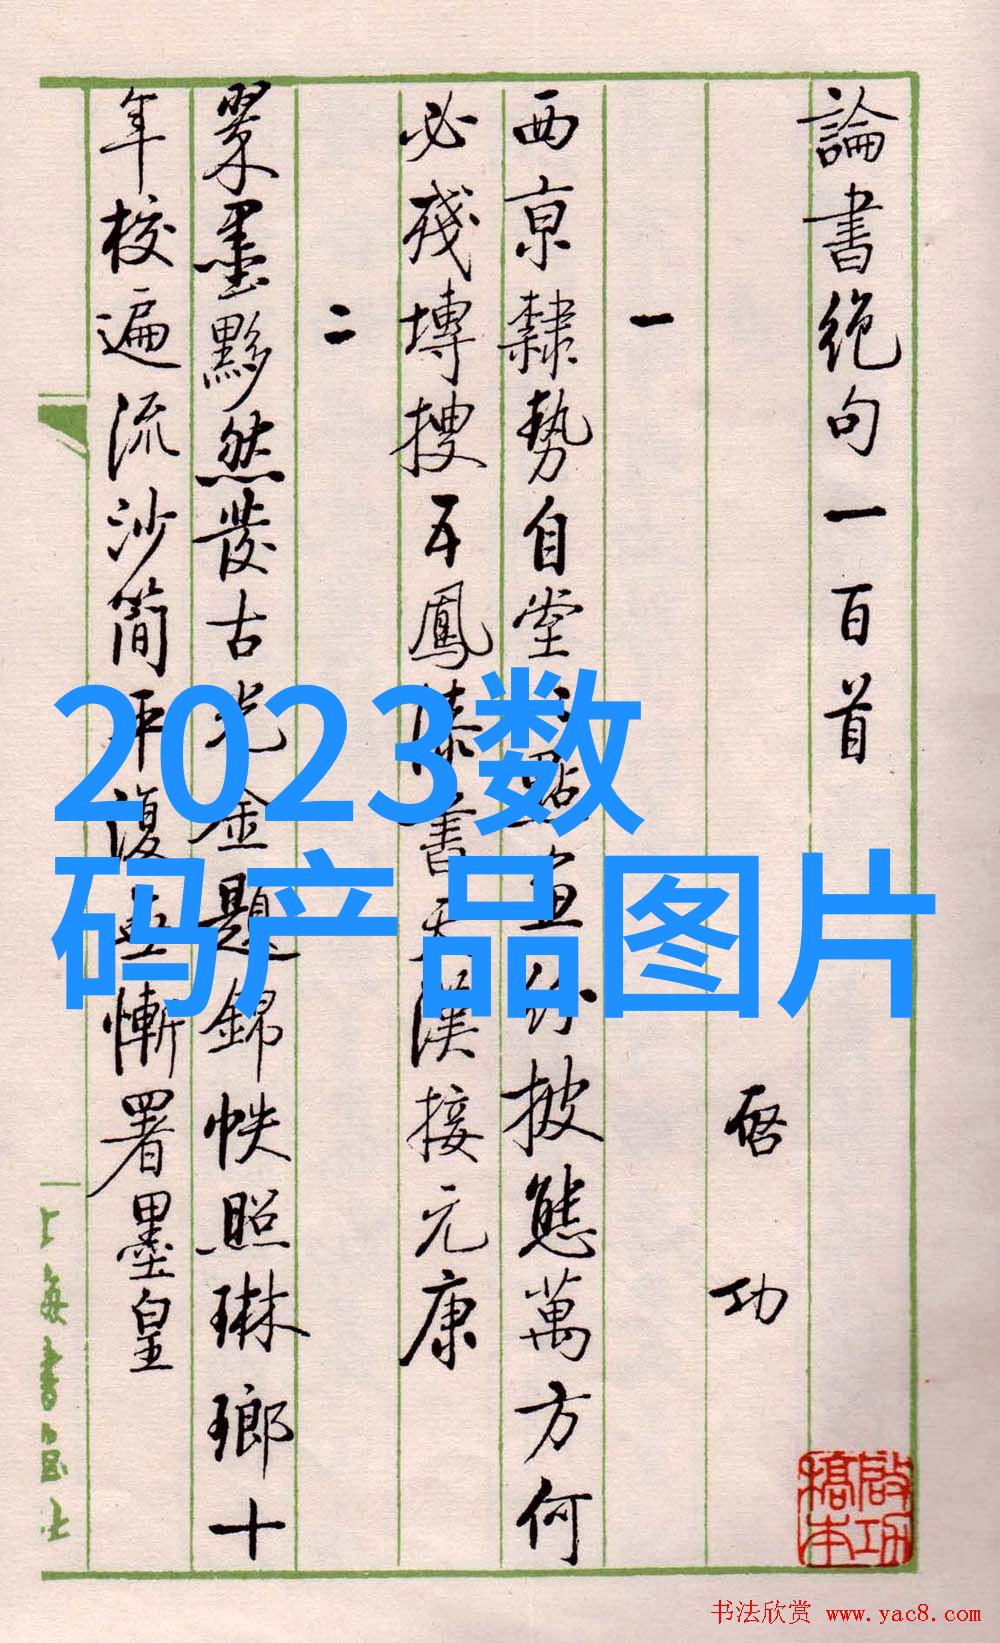 論書絶句一百首
啓功
一
西京隸勢自堂堂點畫紛披態萬方何
必殘塼搜五鳳漆書天漢接元康
二
翠墨黟然發古光金題錦帙照琳瑯十
年校遍流沙簡平復無慚署墨皇
2023数
码产品图片
上海書畫社
啟功
稿本
书法欣赏 www.yac8.com